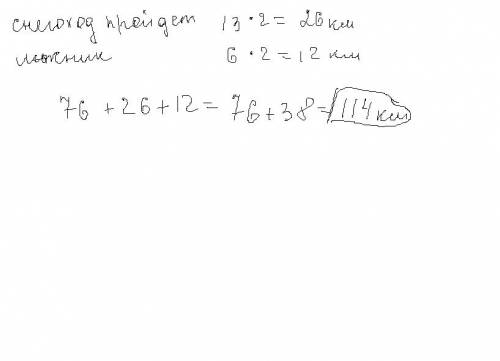 снегоход пройдет 13 · 2 = 26 км
лыжник 6 · 2 = 12 км
76 + 26 + 12 = 76 + 38 = 114 км